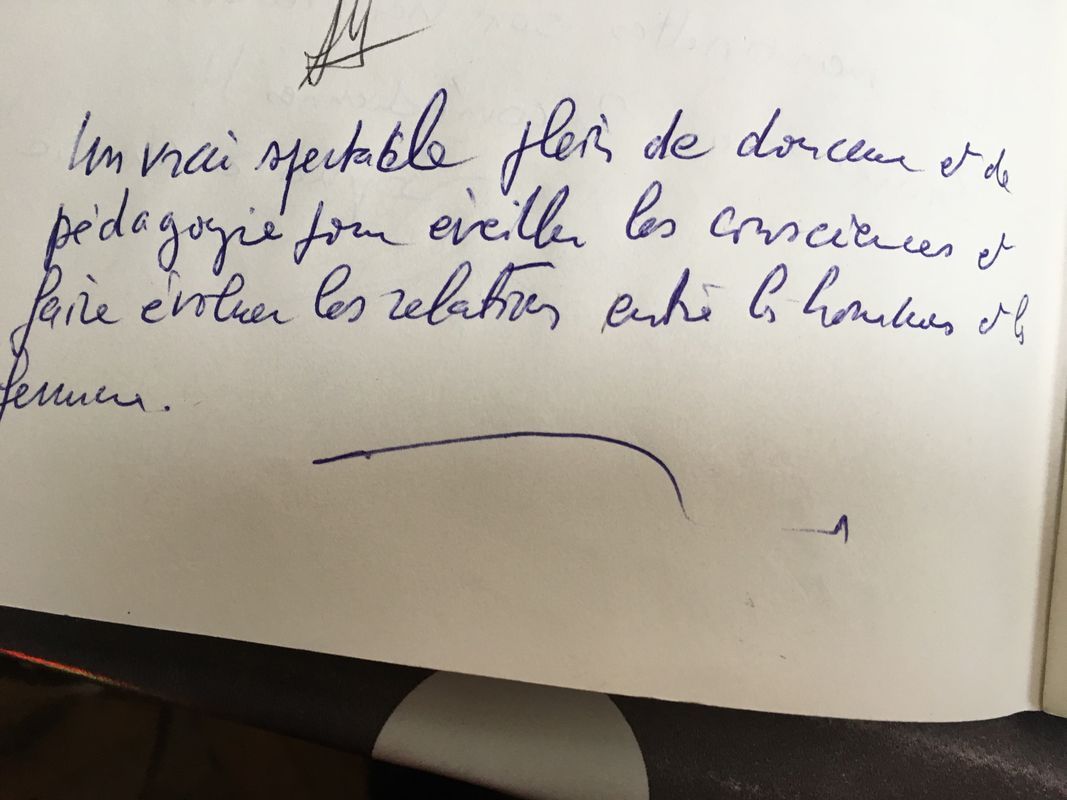 Un vrai spectable plein de douceur et de
pédagogie pour éveiller les consciences et
faire évoluer les relations entre les hommes et les
femmes.